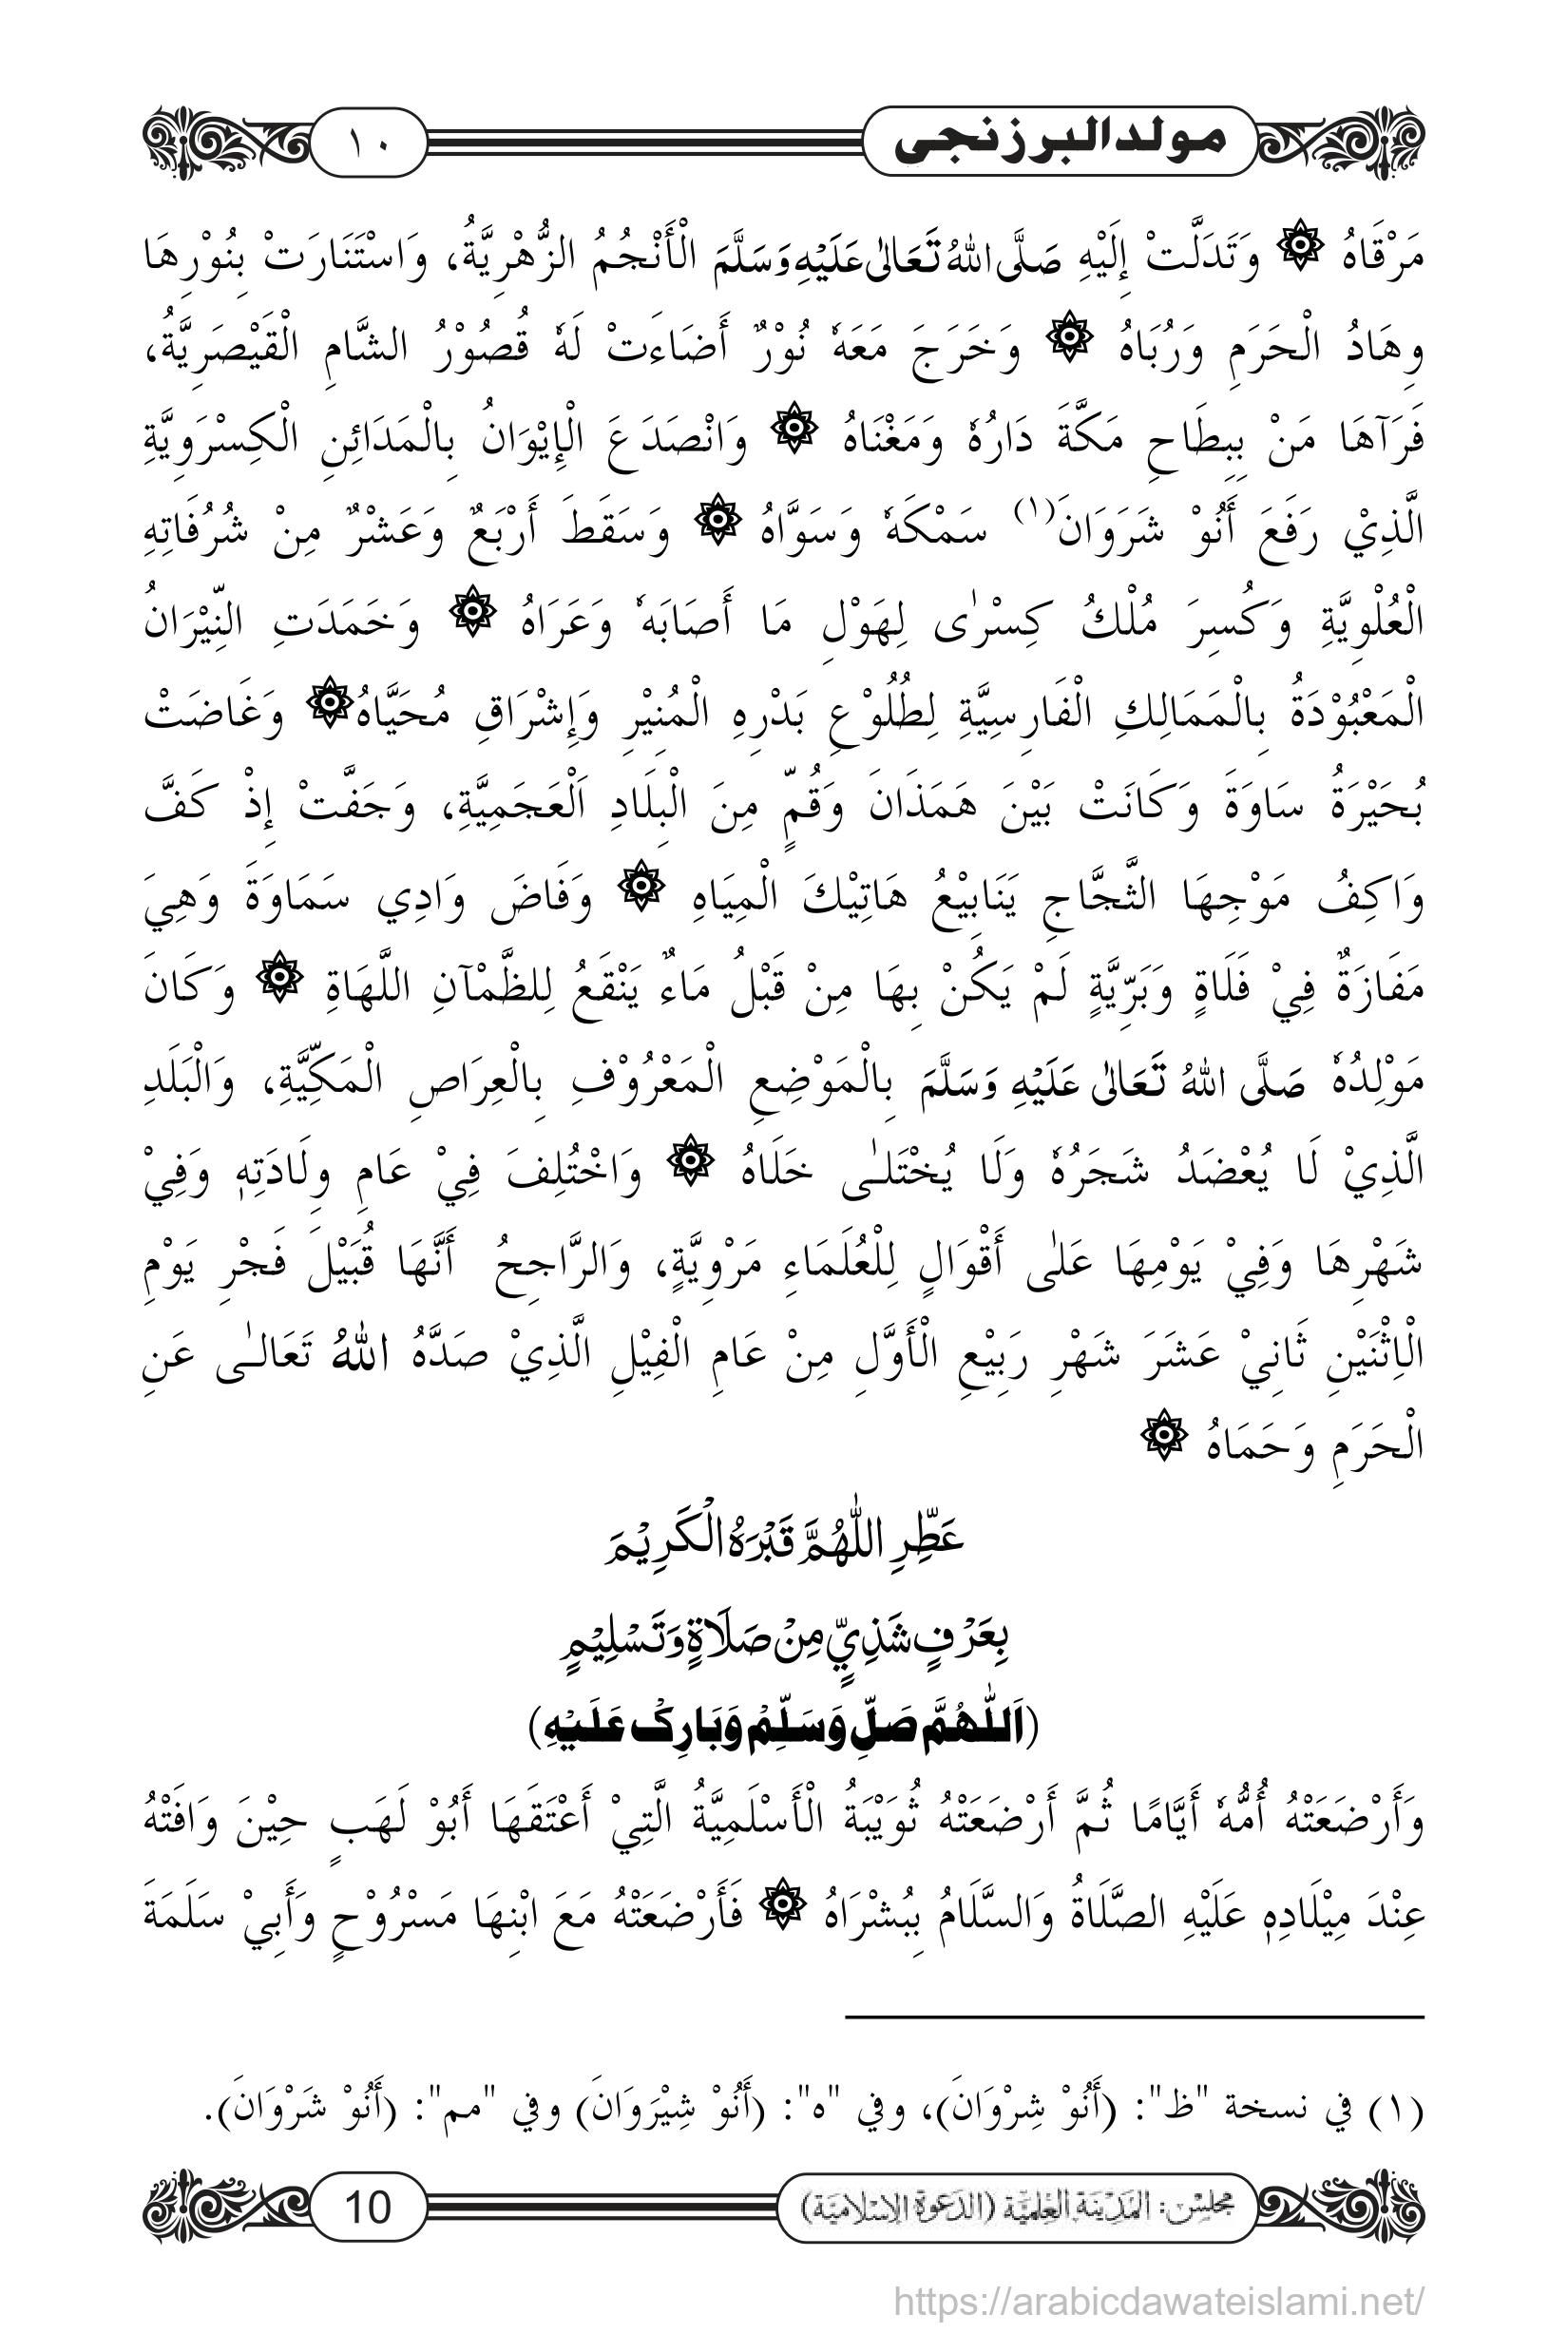 مولد البرزنجی
١٠
مَرْقَاهُ ۞ وَتَدَلَّتْ إِلَيْهِ صَلَّى اللهُ تَعَالٰى عَلَيْهِ وَسَلَّمَ الْأَنْجُمُ الزُّهْرِيَّةُ، وَاسْتَنَارَتْ بِنُوْرِهَا
وِهَادُ الْحَرَمِ وَرُبَاهُ ۞ وَخَرَجَ مَعَهٗ نُوْرٌ أَضَاءَتْ لَهٗ قُصُوْرُ الشَّامِ الْقَيْصَرِيَّةُ،
فَرَآهَا مَنْ بِبِطَاحِ مَكَّةَ دَارُهٗ وَمَغْنَاهُ ۞ وَانْصَدَعَ الْإِيْوَانُ بِالْمَدَائِنِ الْكِسْرَوِيَّةِ
الَّذِيْ رَفَعَ أَنُوْ شَرَوَانَ(١) سَمْكَهٗ وَسَوَّاهُ ۞ وَسَقَطَ أَرْبَعٌ وَعَشْرٌ مِنْ شُرُفَاتِهِ
الْعُلْوِيَّةِ وَكُسِرَ مُلْكُ كِسْرٰى لِهَوْلِ مَا أَصَابَهٗ وَعَرَاهُ ۞ وَخَمَدَتِ النِّيْرَانُ
الْمَعْبُوْدَةُ بِالْمَمَالِكِ الْفَارِسِيَّةِ لِطُلُوْعِ بَدْرِهِ الْمُنِيْرِ وَإِشْرَاقِ مُحَيَّاهُ ۞ وَغَاضَتْ
بُحَيْرَةُ سَاوَةَ وَكَانَتْ بَيْنَ هَمَذَانَ وَقُمٍّ مِنَ الْبِلَادِ اَلْعَجَمِيَّةِ، وَجَفَّتْ إِذْ كَفَّ
وَاكِفُ مَوْجِهَا الثَّجَّاجِ يَنَابِيْعُ هَاتِيْكَ الْمِيَاهِ ۞ وَفَاضَ وَادِي سَمَاوَةَ وَهِيَ
مَفَازَةٌ فِيْ فَلَاةٍ وَبَرِّيَّةٍ لَمْ يَكُنْ بِهَا مِنْ قَبْلُ مَاءٌ يَنْقَعُ لِلظَّمْآنِ اللَّهَاةِ ۞ وَكَانَ
مَوْلِدُهٗ صَلَّى اللهُ تَعَالٰى عَلَيْهِ وَسَلَّمَ بِالْمَوْضِعِ الْمَعْرُوْفِ بِالْعِرَاصِ الْمَكِّيَّةِ، وَالْبَلَدِ
الَّذِيْ لَا يُعْضَدُ شَجَرُهٗ وَلَا يُخْتَلـٰى خَلَاهُ ۞ وَاخْتُلِفَ فِيْ عَامِ وِلَادَتِهٖ وَفِيْ
شَهْرِهَا وَفِيْ يَوْمِهَا عَلٰى أَقْوَالٍ لِلْعُلَمَاءِ مَرْوِيَّةٍ، وَالرَّاجِحُ أَنَّهَا قُبَيْلَ فَجْرِ يَوْمِ
الْاِثْنَيْنِ ثَانِيْ عَشَرَ شَهْرِ رَبِيْعِ الْأَوَّلِ مِنْ عَامِ الْفِيْلِ الَّذِيْ صَدَّهُ اللهُ تَعَالـٰى عَنِ
الْحَرَمِ وَحَمَاهُ ۞
عَطِّرِ اللّٰهُمَّ قَبْرَهُ الْكَرِيْمَ
بِعَرْفٍ شَذِيٍّ مِنْ صَلَاةٍ وَتَسْلِيْمٍ
(اَللّٰهُمَّ صَلِّ وَسَلِّمْ وَبَارِكْ عَلَيْهِ)
وَأَرْضَعَتْهُ أُمُّهٗ أَيَّامًا ثُمَّ أَرْضَعَتْهُ ثُوَيْبَةُ الْأَسْلَمِيَّةُ الَّتِيْ أَعْتَقَهَا أَبُوْ لَهَبٍ حِيْنَ وَافَتْهُ
عِنْدَ مِيْلَادِهٖ عَلَيْهِ الصَّلَاةُ وَالسَّلَامُ بِبُشْرَاهُ ۞ فَأَرْضَعَتْهُ مَعَ ابْنِهَا مَسْرُوْحٍ وَأَبِيْ سَلَمَةَ
(١) في نسخة "ظ": (أَنُوْ شِرْوَانَ)، وفي "ه": (أَنُوْ شِيْرَوَانَ) وفي "مم": (أَنُوْ شَرْوَانَ).
مجلس: المَدِيْنَة العِلميَّة (الدَعوة الإسْلاميَة)
10
https://arabicdawateislami.net/